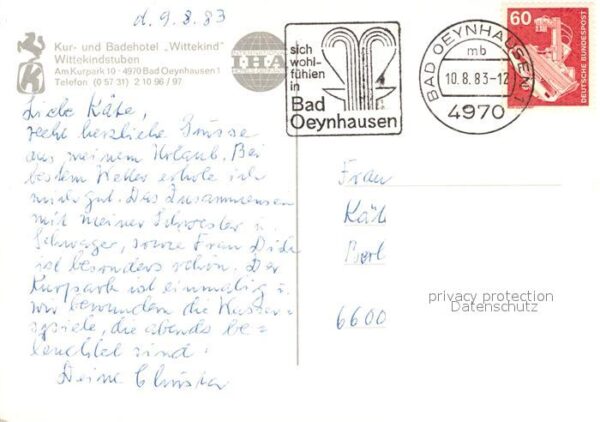 d. 9.8.83
Kur- und Badehotel „Wittekind"
Wittekindstuben
Am Kurpark 10 - 4970 Bad Oeynhausen 1
Telefon (0 57 31) 2 10 96 / 97
IHA
sich
wohl-
fühlen
in
Bad
Oeynhausen
BAD OEYNHAUSEN 1
mb
10.8.83-12
4970
60
DEUTSCHE BUNDESPOST
Liebe Käte,
recht herzliche Grüsse
aus meinem Urlaub. Bei
bestem Wetter erhole ich
mich gut. Das Zusammensein
mit meiner Schwester u.
Schwager, sowie Frau
ist besonders schön. Der
Kurpark ist einmalig u.
wir bewundern die Wasser=
spiele, die abends be=
leuchtet sind.
Deine Christa
Frau
Kät
Berl
6600
privacy protection
Datenschutz